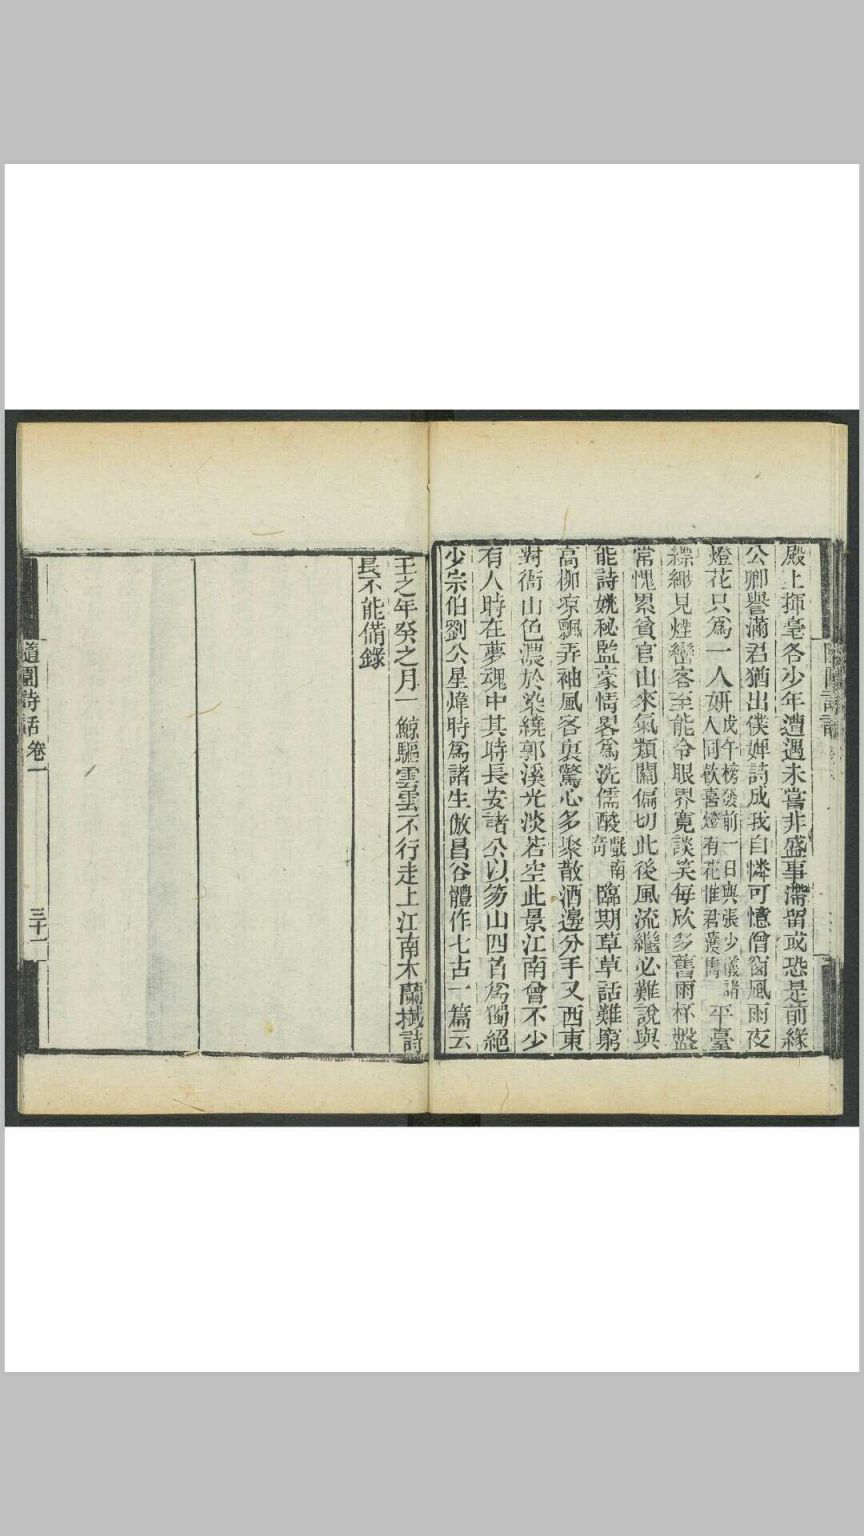 殿上揮毫各少年遭遇未嘗非盛事滯留或恐是前緣
公卿譽滿君猶出僕婢詩成我自憐可憶僧窗風雨夜
燈花只爲一人妍戊午榜發前一日與張少儀諸人同飲喜燈有花惟君獲雋平臺
縹緲見煙巒客至能令眼界寬談笑每欣多舊雨杯盤
常愧累貧官山來氣類關偏切此後風流繼必難說與
能詩姚秘監豪情畧爲洗儒酸南臨期草草話難窮
高柳凉飄弄袖風客裏驚心多聚散酒邊分手又西東
對衙山色濃於染繞郭溪光淡若空此景江南曾不少
有人時在夢魂中其時長安諸公以笏山四首爲獨絕
少宗伯劉公星煒時爲諸生倣昌谷體作七古一篇云
壬之年癸之月一鯨驅雲雲不行走上江南木蘭檝詩
長不能備錄
隨園詩話 卷一
三十一